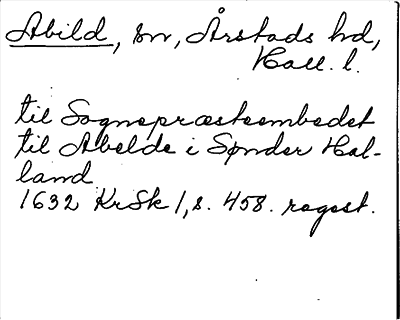 Abild, sn, Årstads hd,
Hall. l.
til Sognepræsteembedet
til Abelde i Sønder Hal-
land
1632 KrSk 1, s. 458. regest.